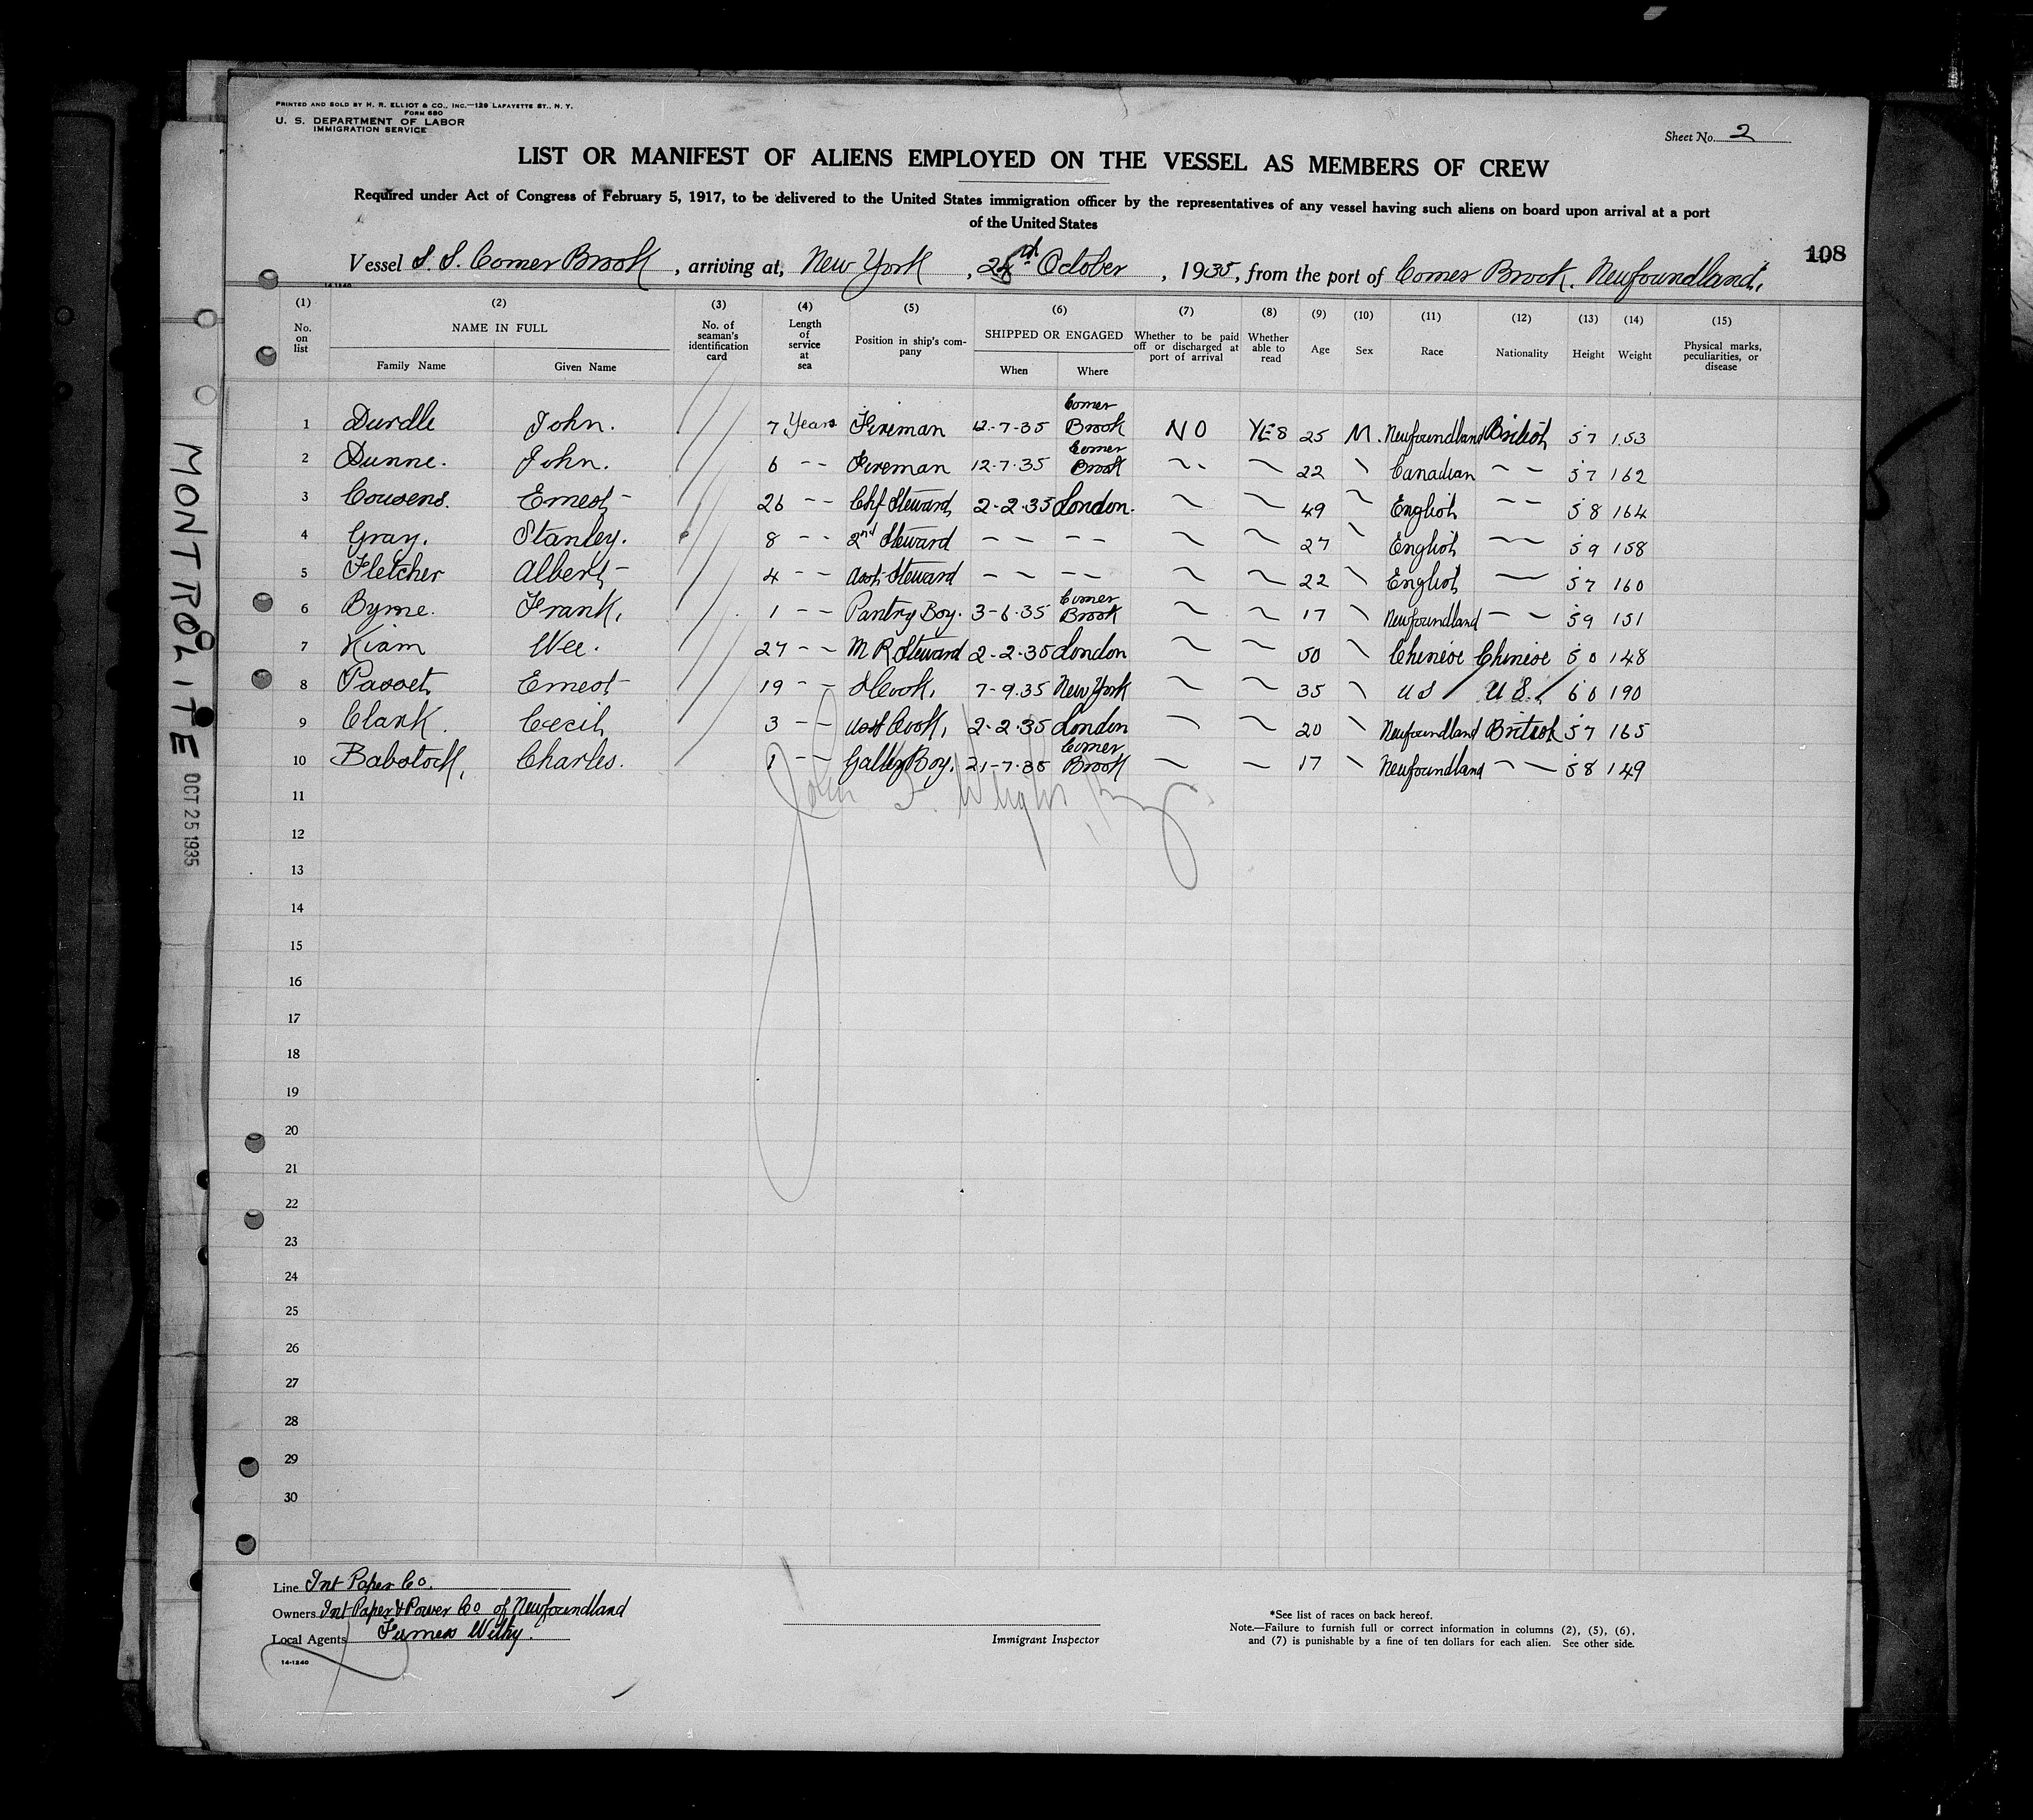 PRINTED AND SOLD BY H. R. ELLIOT & CO., INC.—129 LAFAYETTE ST., N. Y.
FORM 680
U. S. DEPARTMENT OF LABOR
IMMIGRATION SERVICE
Sheet No. 2
LIST OR MANIFEST OF ALIENS EMPLOYED ON THE VESSEL AS MEMBERS OF CREW
Required under Act of Congress of February 5, 1917, to be delivered to the United States immigration officer by the representatives of any vessel having such aliens on board upon arrival at a port
of the United States
108
Vessel S. S. Corner Brook, arriving at, New York, October, 1935, from the port of Corner Brook. Newfoundland.
14-1240
(1) (2) (3) (4) (5) (6) (7) (8) (9) (10) (11) (12) (13) (14) (15)
No. on list NAME IN FULL Family Name Given Name No. of seaman's identification card Length of service at sea Position in ship's company SHIPPED OR ENGAGED When Where Whether to be paid off or discharged at port of arrival Whether able to read Age Sex Race Nationality Height Weight Physical marks, peculiarities, or disease
1 Durdle John. 7 Years Fireman 12-7-35 Corner Brook NO YES 25 M. Newfoundland British 5 7 153
2 Dunne. John. 6 -- Fireman 12-7-35 Corner Brook ~ ~ 22 \ Canadian -- 5 7 162
3 Cousens. Ernest 26 -- Chf Steward 2-2-35 London. ~ ~ 49 \ English -- 5 8 164
4 Gray. Stanley. 8 -- 2nd Steward -- -- ~ ~ 27 \ English -- 5 9 158
5 Fletcher Albert 4 -- Asst Steward -- -- ~ ~ 22 \ English -- 5 7 160
6 Byrne. Frank. 1 -- Pantry Boy. 3-6-35 Corner Brook ~ ~ 17 \ Newfoundland -- 5 9 151
7 Kiam Wee. 27 -- M R Steward 2-2-35 London ~ ~ 50 \ Chinese Chinese 5 0 148
8 Passet Ernest 19 -- S Cook, 7-9.35 New York ~ ~ 35 \ U S U S. 6 0 190
9 Clark. Cecil 3 -- Asst Cook, 2-2-35 London ~ ~ 20 \ Newfoundland British 5 7 165
10 Babstock, Charles. 1 -- Galley Boy. 21-7-35 Corner Brook ~ ~ 17 \ Newfoundland -- 5 8 149
11
12
13
14
15
16
17
18
19
20
21
22
23
24
25
26
27
28
29
30
Line Int Paper Co.
Owners Int Paper & Power Co of Newfoundland
Local Agents Furness Withy.
14-1240
Immigrant Inspector
*See list of races on back hereof.
Note.—Failure to furnish full or correct information in columns (2), (5), (6),
and (7) is punishable by a fine of ten dollars for each alien. See other side.
MONTROLITE
OCT 25 1935